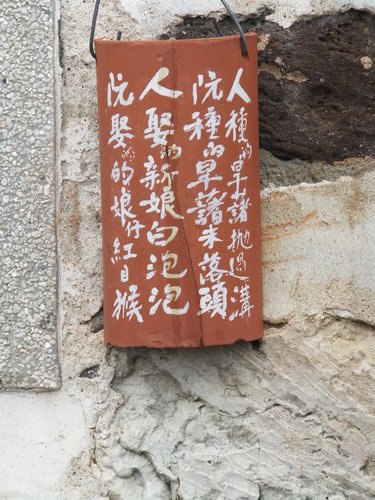 人種的旱藷拋過溝
阮種的旱藷未落頭
人娶的新娘白泡泡
阮娶的娘仔紅目猴